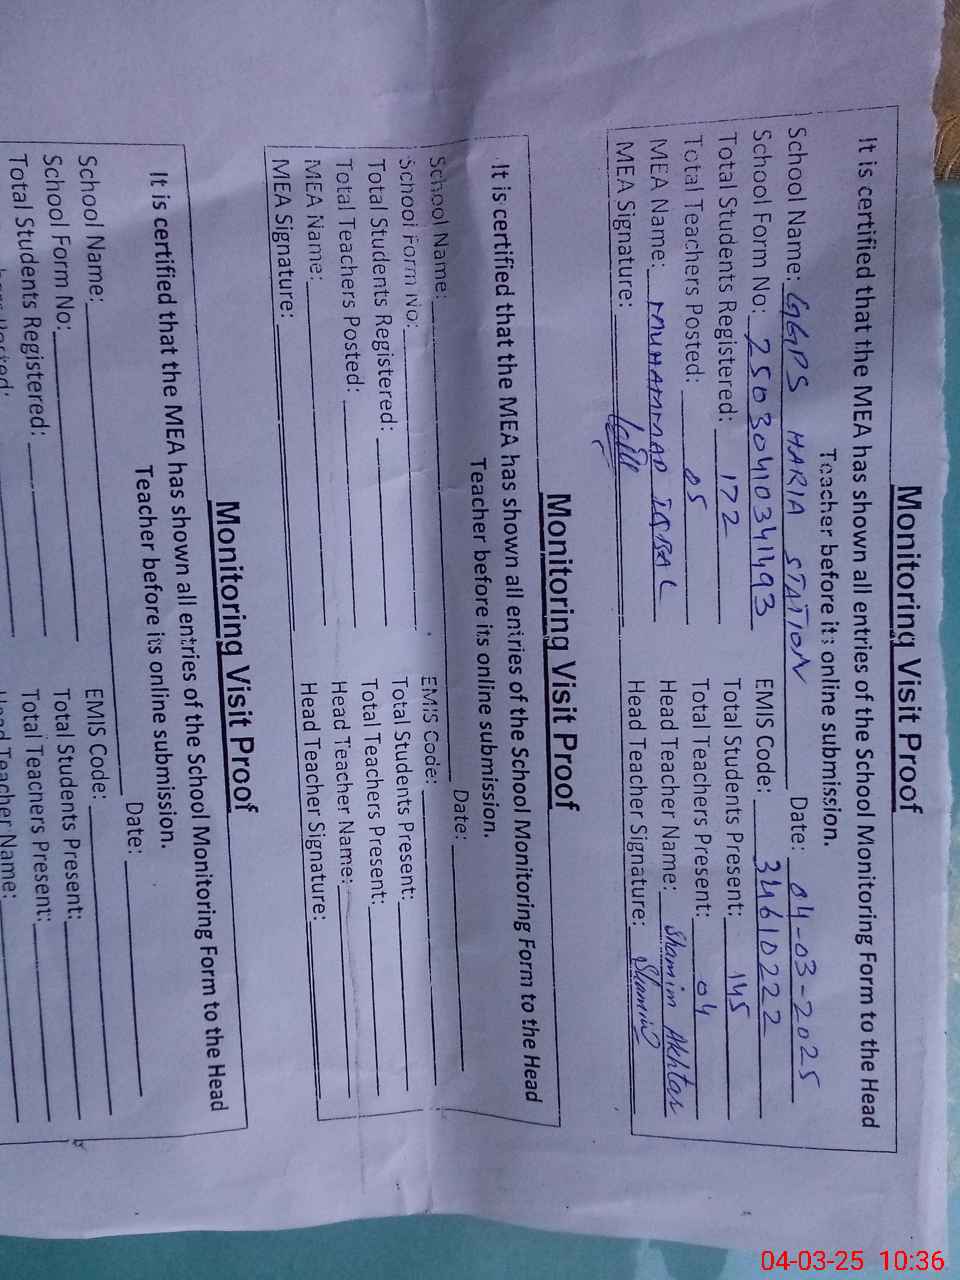 Monitoring Visit Proof
It is certified that the MEA has shown all entries of the School Monitoring Form to the Head
Teacher before its online submission.
School Name: GGPS HARIA STATION Date: 04-03-2025
School Form No: 250304103411493 EMIS Code: 34610222
Total Students Registered: 172 Total Students Present: 145
Total Teachers Posted: 05 Total Teachers Present: 04
MEA Name: MUHAMMAD IQBAL Head Teacher Name: Shamim Akhtar
MEA Signature: Head Teacher Signature: Shamim
Monitoring Visit Proof
It is certified that the MEA has shown all entries of the School Monitoring Form to the Head
Teacher before its online submission.
School Name: Date:
School Form No: EMIS Code:
Total Students Registered: Total Students Present:
Total Teachers Posted: Total Teachers Present:
MEA Name: Head Teacher Name:
MEA Signature: Head Teacher Signature:
Monitoring Visit Proof
It is certified that the MEA has shown all entries of the School Monitoring Form to the Head
Teacher before its online submission.
School Name: Date:
School Form No: EMIS Code:
Total Students Registered: Total Students Present:
Total Teachers Present:
Head Teacher Name:
04-03-25 10:36